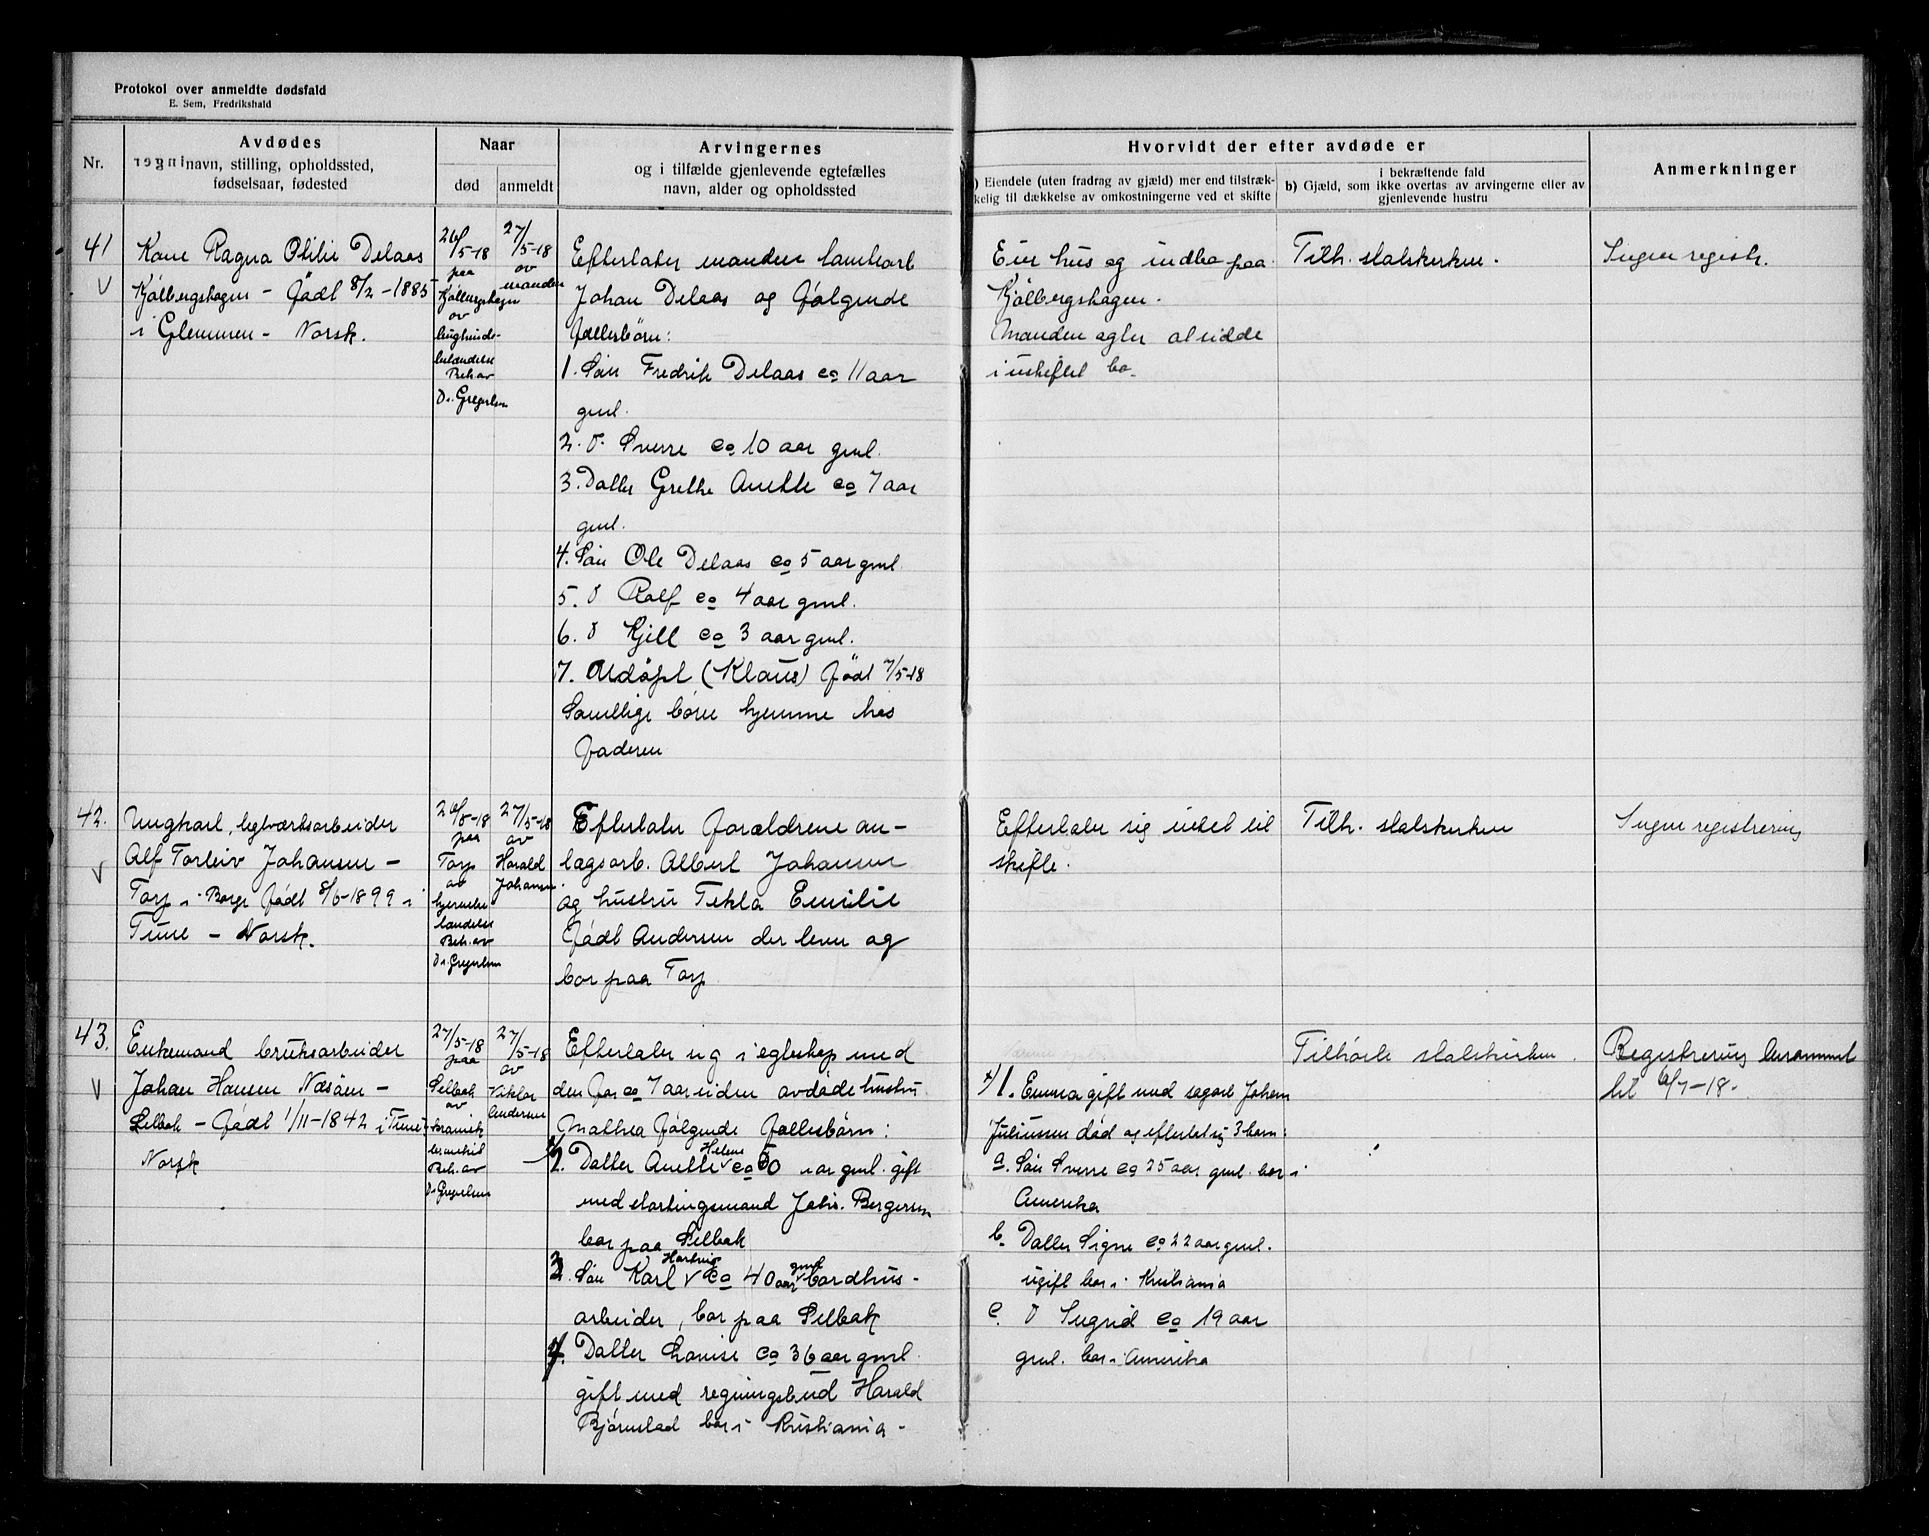 Protokol over anmeldte dødsfald
E. Sem, Fredrikshald
Nr.
Avdødes
navn, stilling, opholdssted,
fødselsaar, fødested
Naar
død
anmeldt
Arvingernes
og i tilfælde gjenlevende egtefælles
navn, alder og opholdssted
Hvorvidt der efter avdøde er
) Eiendele (uten fradrag av gjæld) mer end tilstræk-
kelig til dækkelse av omkostningerne ved et skifte
i bekræftende fald
b) Gjæld, som ikke overtas av arvingerne eller av
gjenlevende hustru
Anmerkninger
41
Kone Ragna Otilie Delaas
Kjølbergshagen - født 8/2-1885
i Glemmen - Norsk.
26/5-18
paa
Kjølbergshagen
av
lughinde-
betændelse
Beh av
Dr. Gregersen
27/5-18
av
manden
Efterlater manden
Johan Delaas og følgende
fællesbørn:
1. Søn Fredrik Delaas ca 11 aar
gml.
2. d. Sverre ca 10 aar gml.
3. Datter Grethe Anette ca 7 aar
gml.
4. Søn Ole Delaas ca 5 aar gml.
5. d Rolf ca 4 aar gml.
6. d Kjell ca 3 aar gml.
7. Udøpt (Klaus) født 7/5-18
Samtlige børn hjemme hos
faderen
Eier hus og indbo paa
Kjølbergshagen.
Manden agter at sidde
i uskiftet bo.
Tilh. statskirken.
Ingen registr.
42.
Ungkarl, teglverksarbeider
Alf Torleiv Johansen -
Torp i Borge født 8/6-1899 i
Tune - Norsk.
26/5-18
paa
Torp
av
hjernebe-
tændelse
Beh. av
Dr. Gregersen
27/5-18
av
Harald
Johansen
Efterlater forældrene an-
lægsarb. Albert Johansen
og hustru Tekla Emilie
født Andersen der lever og
bor paa Torp
Efterlater sig intet til
skifte.
Tilh. statskirken
Ingen registrering
43.
Enkemand bruksarbeider
Johan Hansen Næsøen -
Selbak - født 1/11-1842 i Tune
Norsk
27/5-18
paa
Selbak
av
kronisk
bronchit
Beh. av
Dr. Gregersen
27/5-18
av
Viktor
Andersen
Efterlater sig i egteskap med
den for ca 7 aar siden avdøde hustru
Mathea følgende fællesbørn:
2. Datter Anette Helene ca 50 aar gml. gift
med stortingsmand Johs. Bergersen
bor paa Selbak
3. Søn Karl Hartvig ca 40 aar gml bordhus-
arbeider, bor paa Selbak
4. Datter Lovise ca 36 aar gml.
gift med regningsbud Harald
Bjørnstad bor i Kristiania -
x) 1. Emma gift med sagarb. Johan
Juliussen død og efterlot sig 3 barn:
a. Søn Sverre ca 25 aar gml. bor i
Amerika
b. Datter Signe ca 22 aar gml.
ugift bor i Kristiania
c. d Sigrid ca 19 aar
gml. bor i Amerika
Tilhørte statskirken.
Registrering berammet
til 6/7-18.